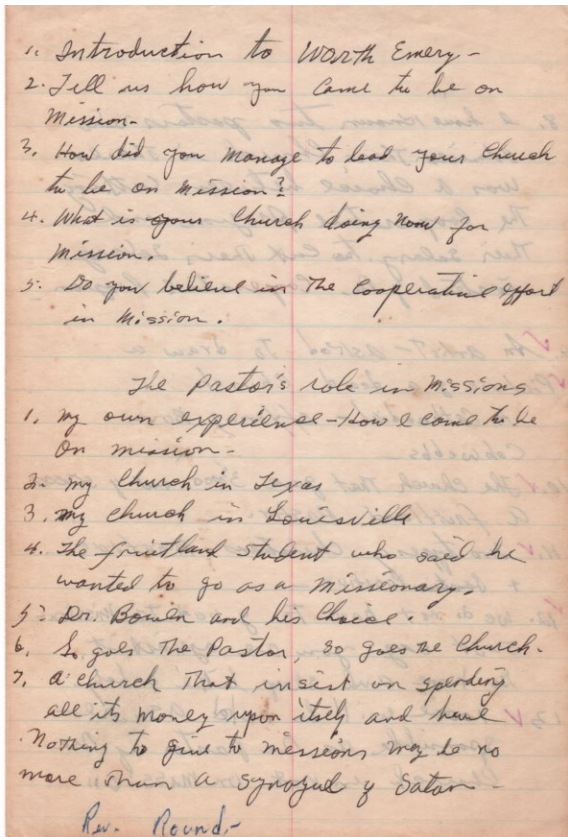 1. Introduction to Worth Emery-
2. Tell us how you came to be on
Mission-
3. How did you manage to lead your Church
to be on mission?
4. What is your Church doing now for
Mission.
5. Do you believe in The Cooperative effort
in Mission.
The Pastor's role in Missions
1. my own experience - How I came to be
On mission-
2. my Church in Texas
3. my church in Louisville
4. The student who said he
wanted to go as a missionary.
5. Dr. Bowen and his Choice.
6. So goes The Pastor, so goes the Church.
7. A church That insist on spending
all its money upon itself and have
Nothing to give to missions may be no
more than a synogud of Satan-
Rev. Round-